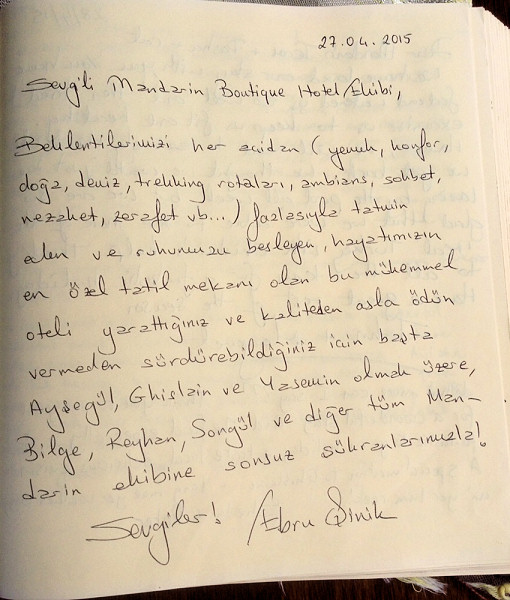 27.04.2015
Sevgili Mandarin Boutique Hotel Ekibi,
Beklentilerimizi her açıdan (yemek, konfor,
doğa, deniz, trekking rotaları, ambians, sohbet,
nezaket, zerafet vb...) fazlasıyla tatmin
eden ve ruhumuzu besleyen, hayatımızın
en özel tatil mekanı olan bu mükemmel
oteli yarattığınız ve kaliteden asla ödün
vermeden sürdürebildiğiniz için başta
Ayşegül, Ghislain ve Yasemin olmak üzere,
Bilge, Reyhan, Songül ve diğer tüm Man-
darin ekibine sonsuz şükranlarımızla!
Sevgiler! Ebru Şinik